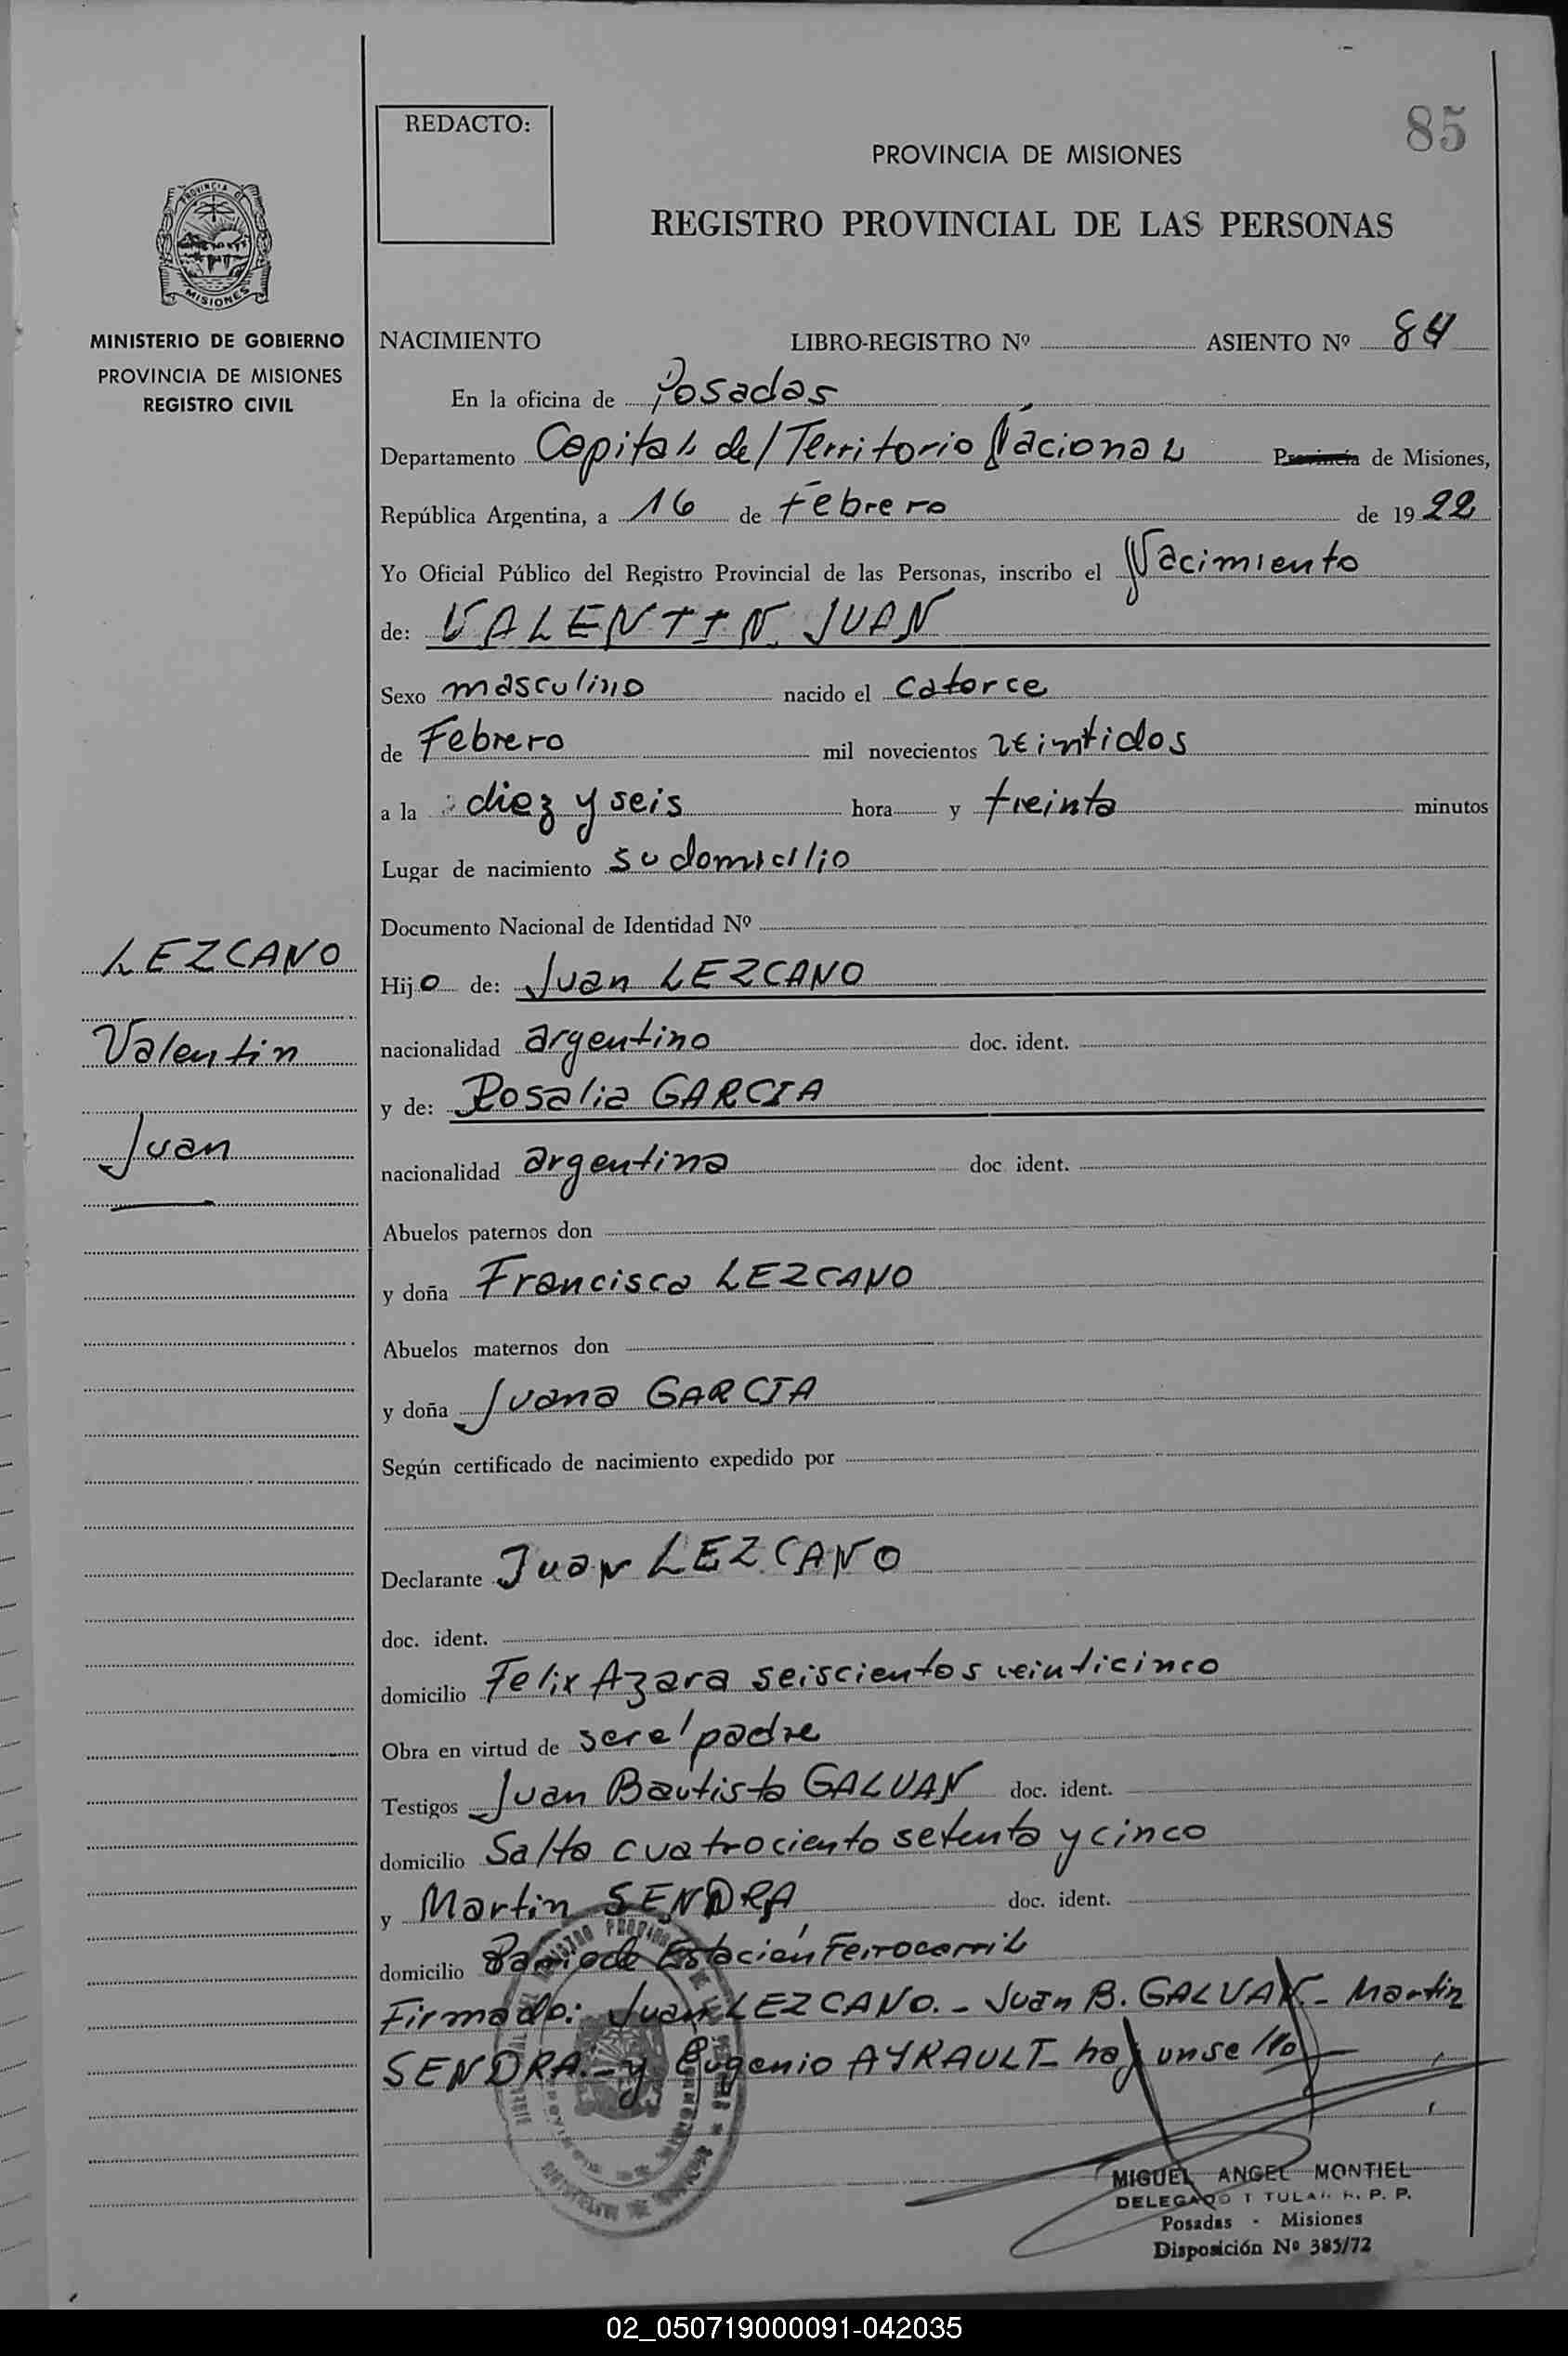 85
REDACTO:
PROVINCIA DE MISIONES
REGISTRO PROVINCIAL DE LAS PERSONAS
PROVINCIA DE
MISIONES
MINISTERIO DE GOBIERNO
PROVINCIA DE MISIONES
REGISTRO CIVIL
NACIMIENTO LIBRO-REGISTRO Nº ASIENTO Nº 84
En la oficina de Posadas
Departamento Capital del Territorio Nacional Provincia de Misiones,
República Argentina, a 16 de Febrero de 1922
Yo Oficial Público del Registro Provincial de las Personas, inscribo el Nacimiento
de: VALENTIN JUAN
Sexo masculino nacido el catorce
de Febrero mil novecientos veintidos
a la diez y seis hora y treinta minutos
Lugar de nacimiento su domicilio
Documento Nacional de Identidad Nº
LEZCANO
Valentin
Juan
Hijo de: Juan LEZCANO
nacionalidad argentino doc. ident.
y de: Rosalia GARCIA
nacionalidad argentina doc ident.
Abuelos paternos don
y doña Francisca LEZCANO
Abuelos maternos don
y doña Juana GARCIA
Según certificado de nacimiento expedido por
Declarante Juan LEZCANO
doc. ident.
domicilio Felix Azara seiscientos veinticinco
Obra en virtud de ser el padre
Testigos Juan Bautista GALVAN doc. ident.
domicilio Salta cuatrociento setenta y cinco
y Martin SENDRA doc. ident.
domicilio Barrio de Estación Ferrocarril
Firmado: Juan LEZCANO.- Juan B. GALVAN.- Martin
SENDRA.- y Eugenio AYRAULT- hay un sello
MIGUEL ANGEL MONTIEL
DELEGADO TITULAR R. P. P.
Posadas - Misiones
Disposición Nº 385/72
02_050719000091-042035